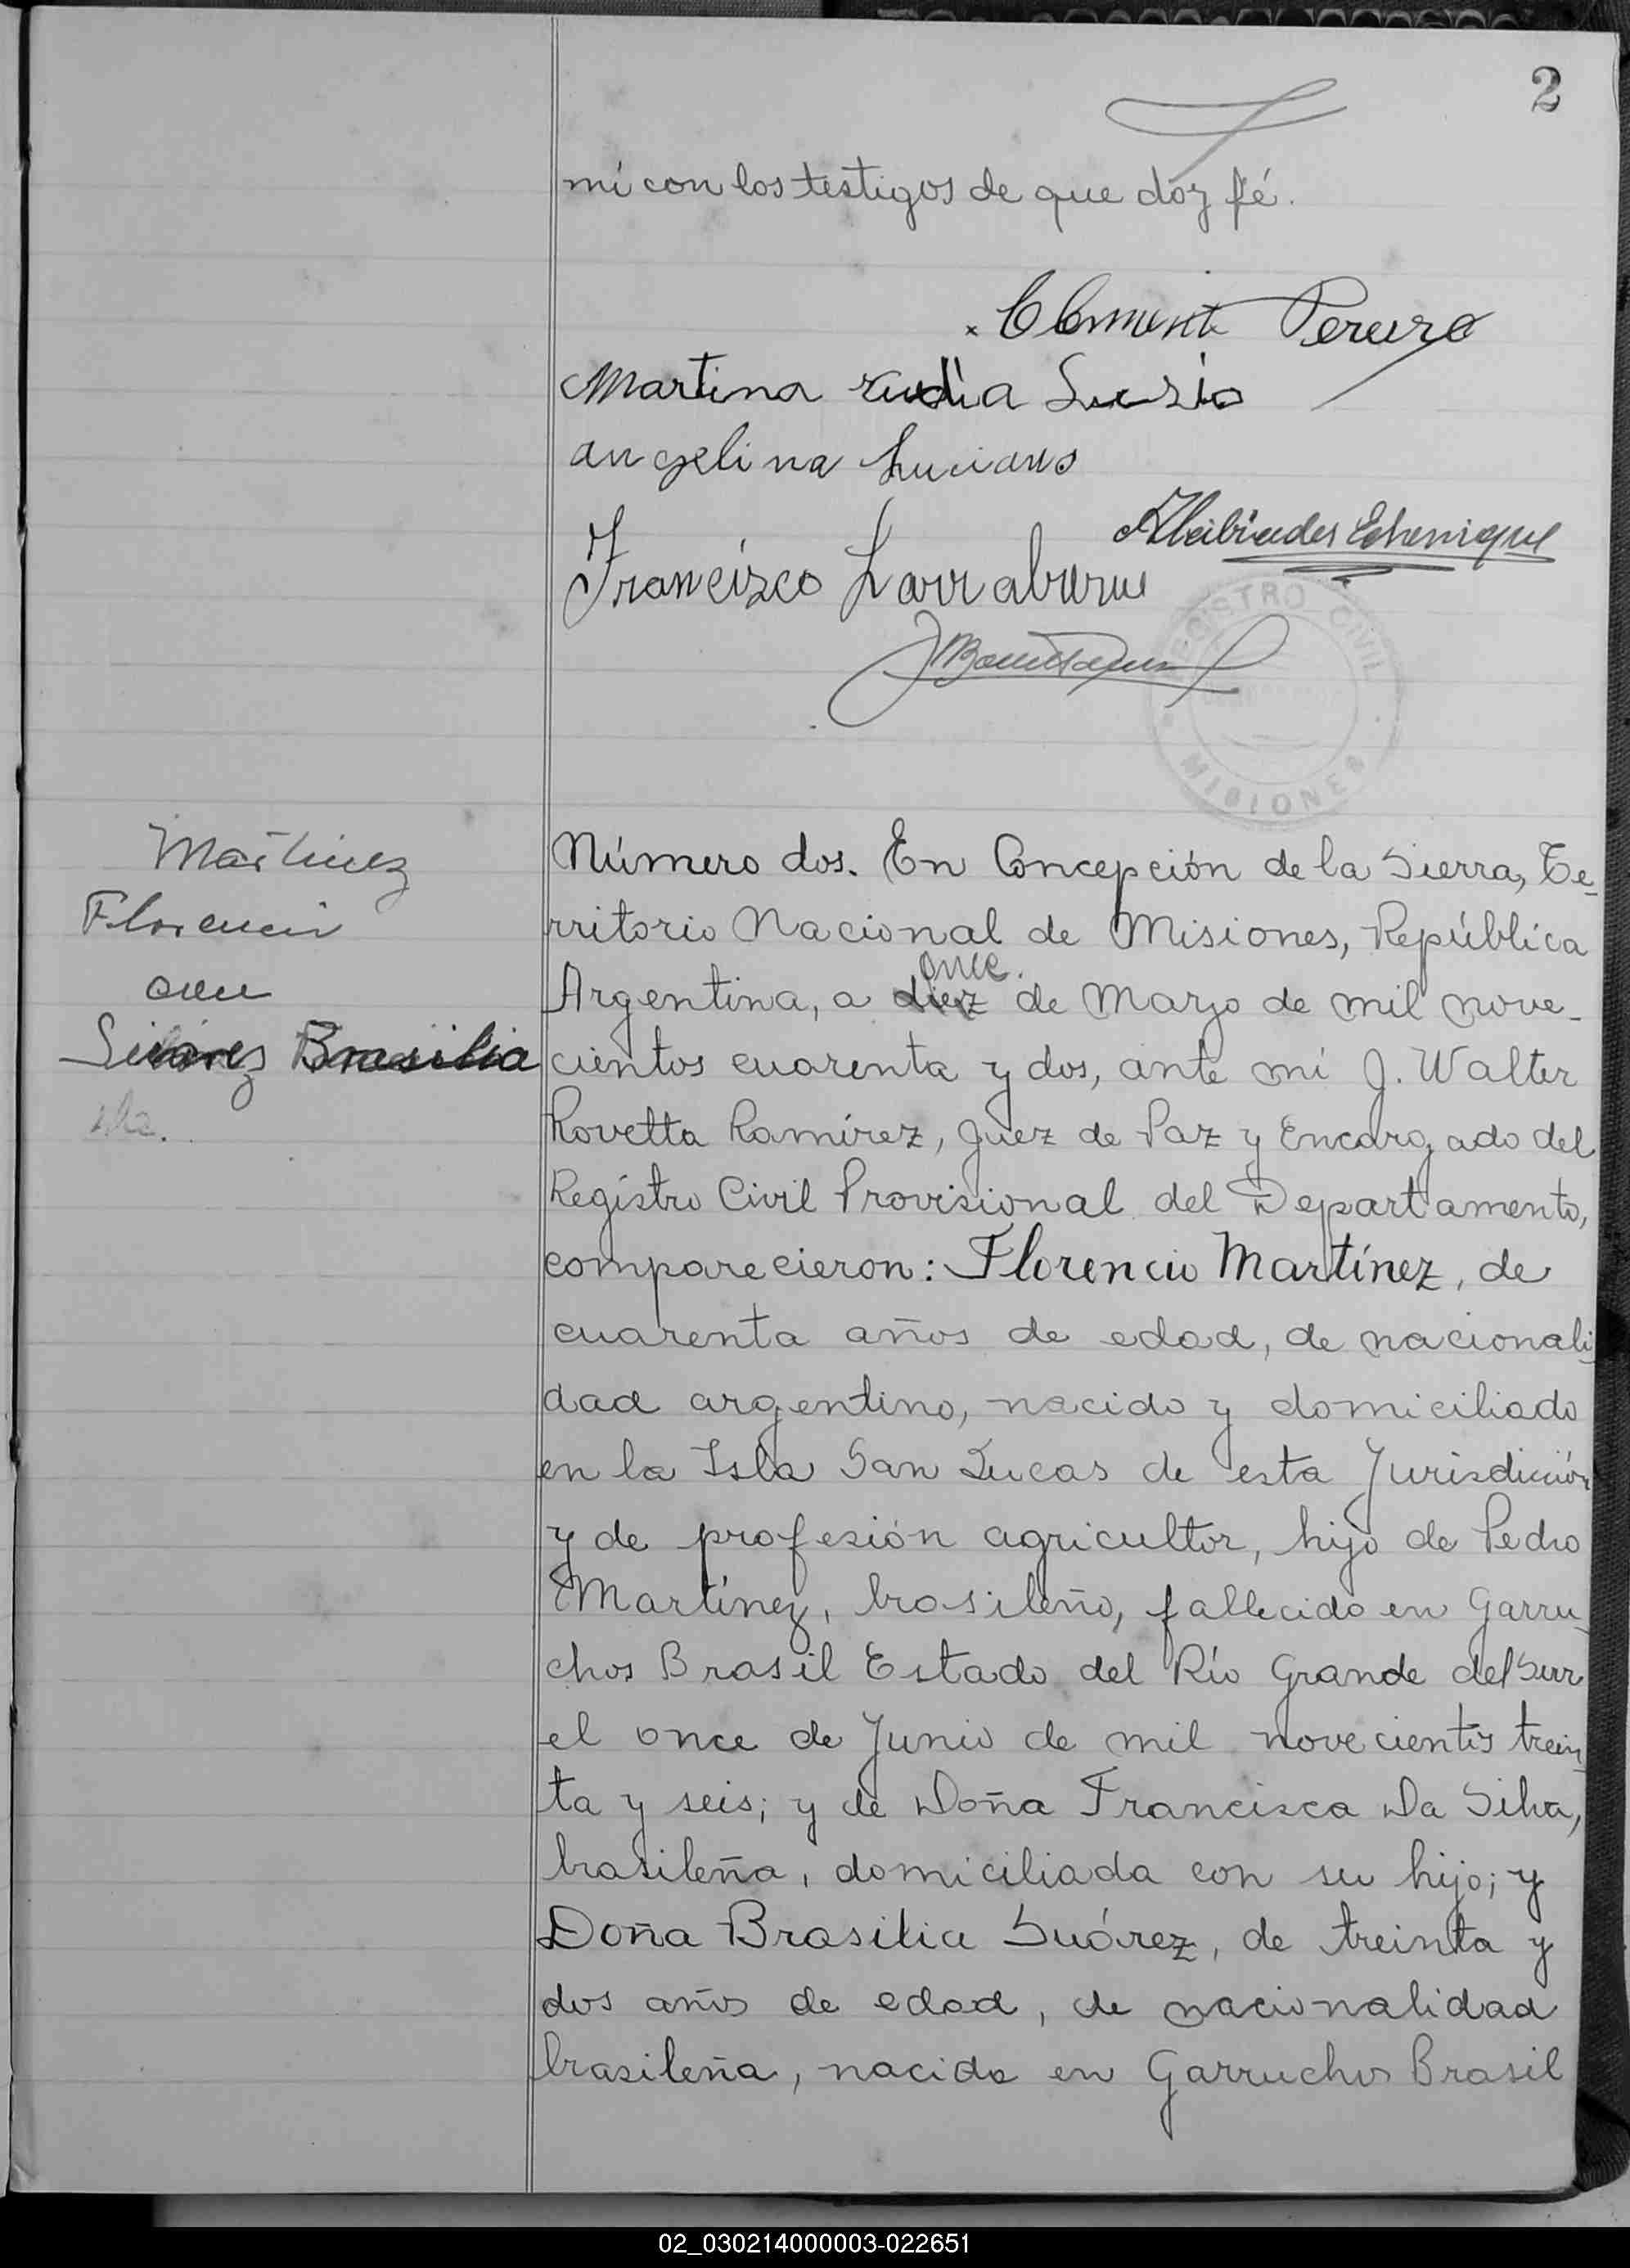 2
mí con los testigos de que doy fé.
Clemente Pereira
Martina Lucia Lucio
angelina Luciano
Alcibíades Echenique
Francisco Larraburu
REGISTRO CIVIL
MISIONES
Martinez
Florencio
con
Suárez Brasilia
Número dos. En Concepción de la Sierra, Te-
rritorio Nacional de Misiones, República
once.
Argentina, a diez de Marzo de mil nove-
cientos cuarenta y dos, ante mí J. Walter
Rovetta Ramírez, Juez de Paz y Encargado del
Registro Civil Provisional del Departamento,
comparecieron: Florencio Martínez, de
cuarenta años de edad, de nacionali-
dad argentino, nacido y domiciliado
en la Isla San Lucas de esta Jurisdicción
y de profesión agricultor, hijo de Pedro
Martínez, brasileño, fallecido en Garru-
chos Brasil Estado del Río Grande del Sur
el once de Junio de mil novecientos trein-
ta y seis; y de Doña Francisca Da Silva,
brasileña, domiciliada con su hijo; y
Doña Brasilia Suárez, de treinta y
dos años de edad, de nacionalidad
brasileña, nacida en Garruchos Brasil
02_030214000003-022651